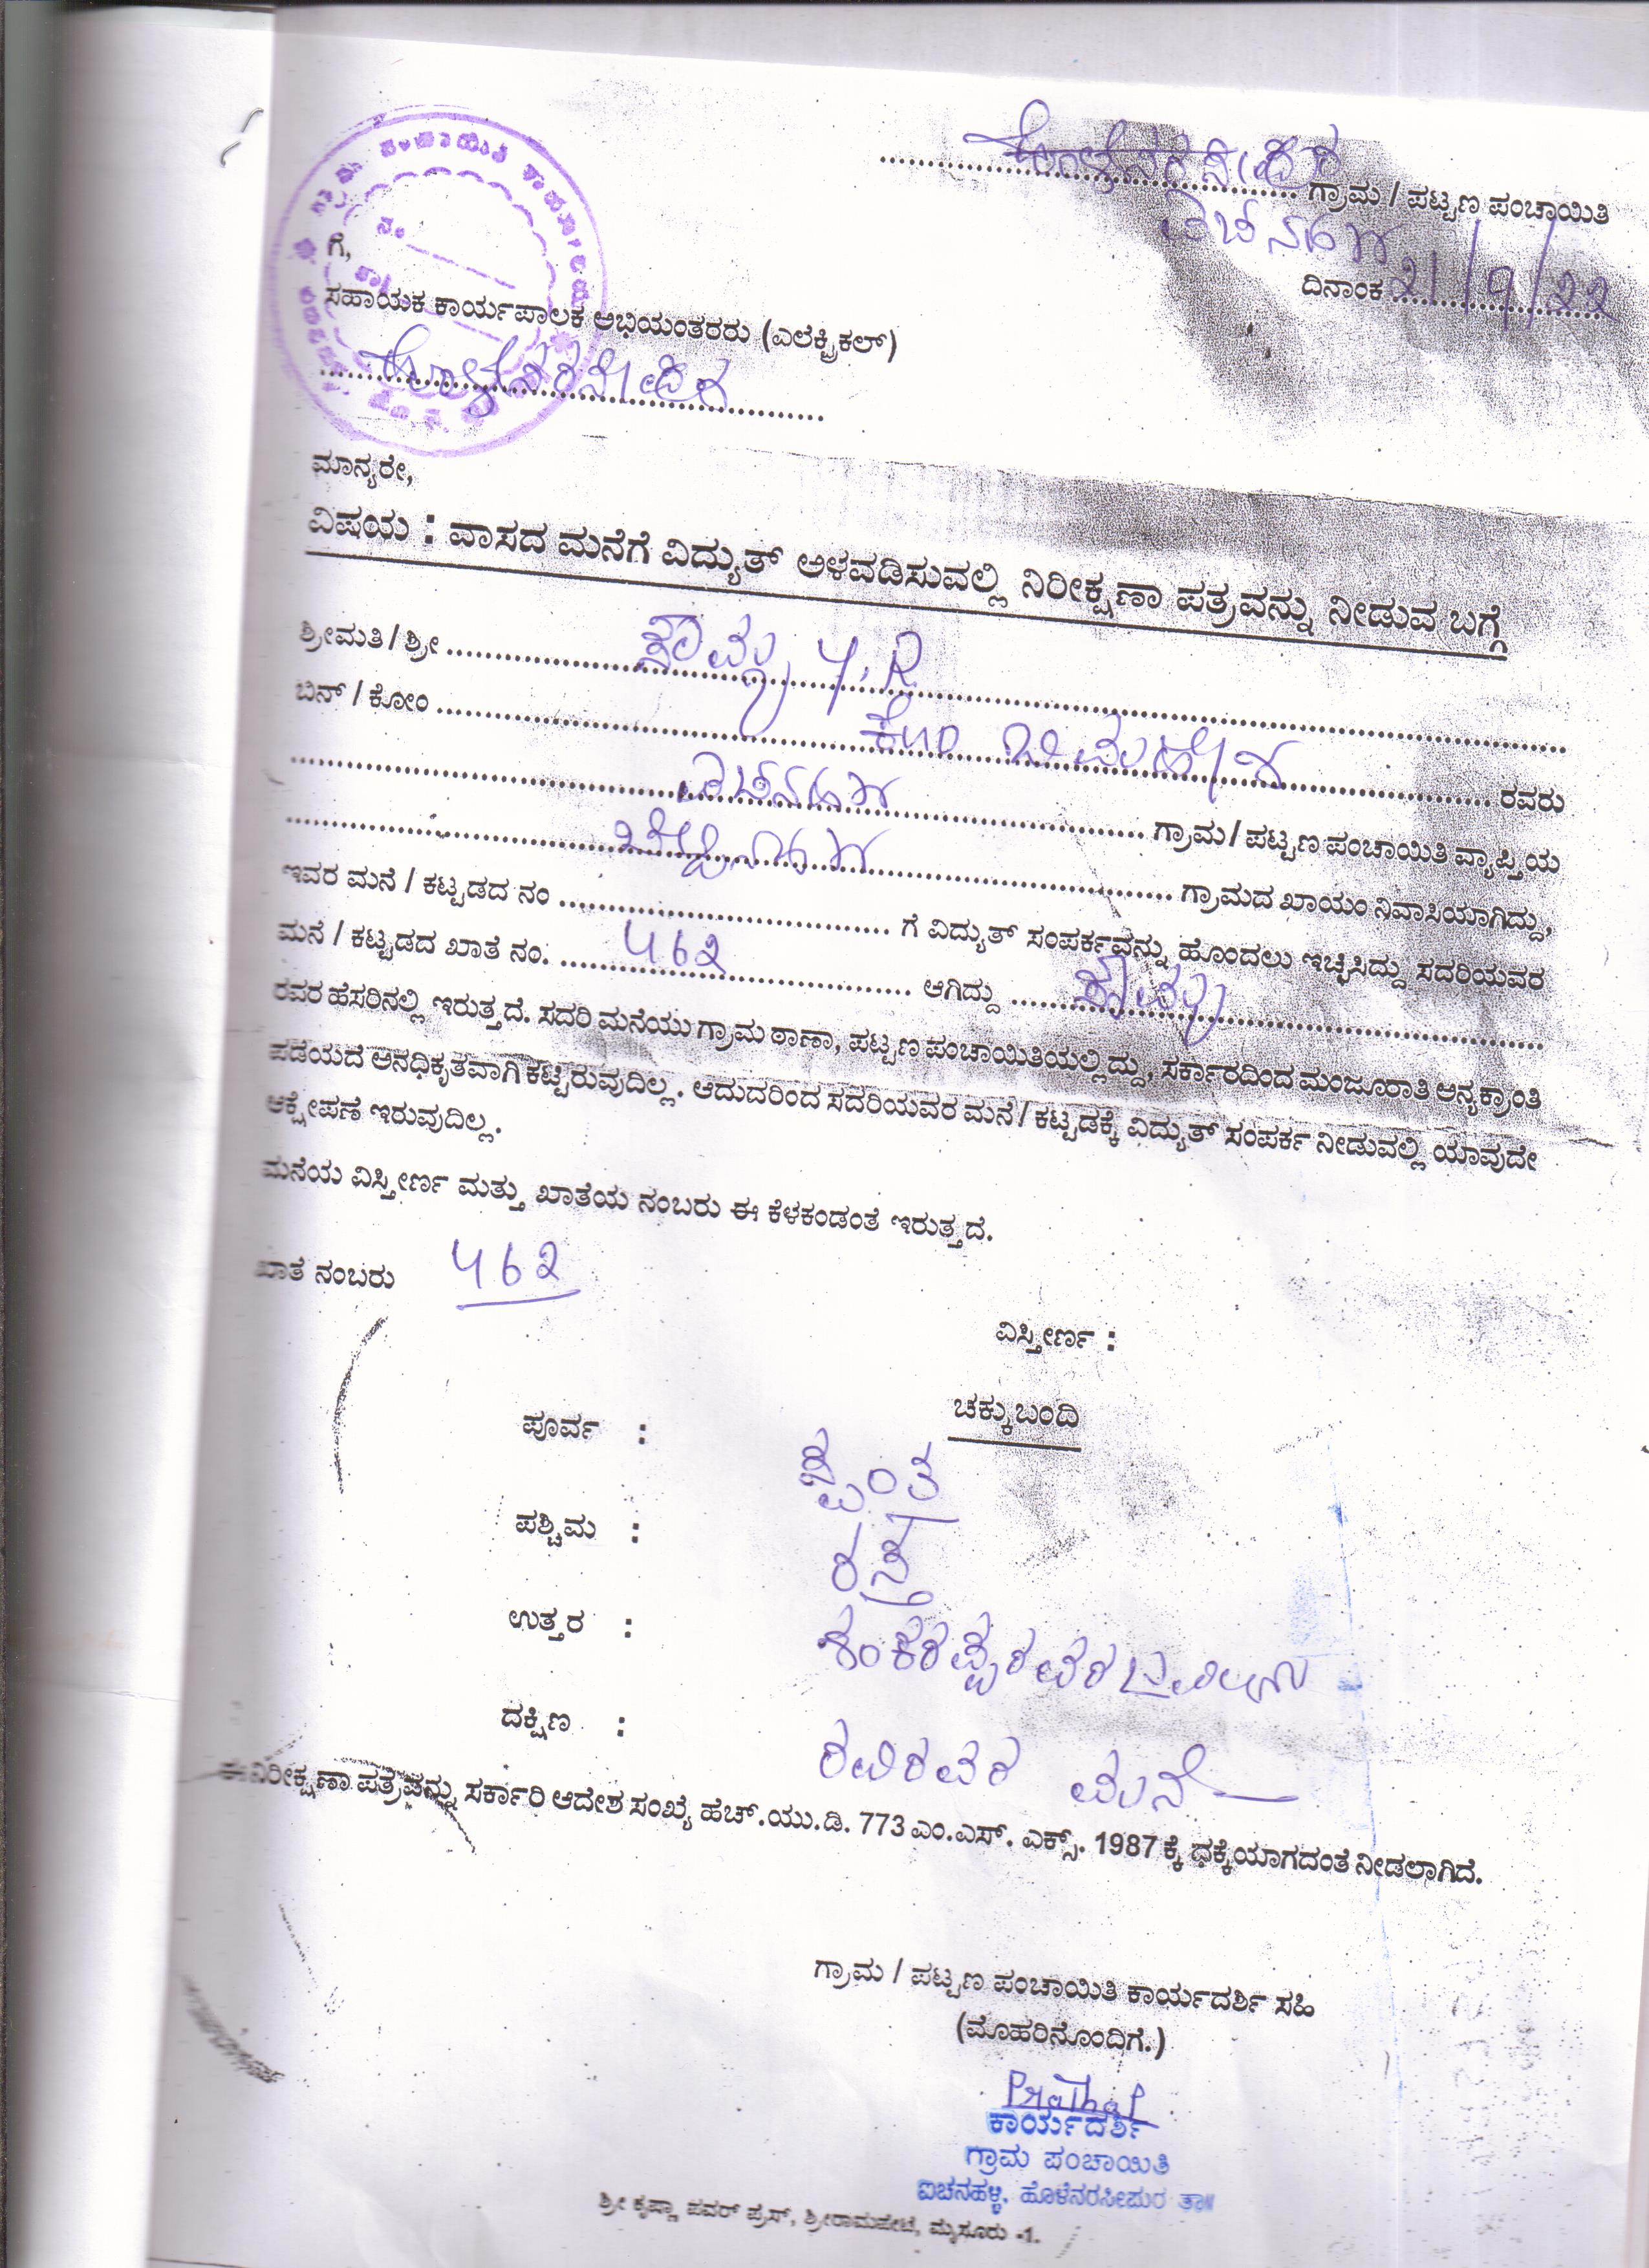 ಗ್ರಾಮ / ಪಟ್ಟಣ ಪಂಚಾಯಿತಿ
ದಿನಾಂಕ 21/9/22
ಗೆ,
ಸಹಾಯಕ ಕಾರ್ಯಪಾಲಕ ಅಭಿಯಂತರರು (ಎಲೆಕ್ಟ್ರಿಕಲ್)
ಮಾನ್ಯರೇ,
ವಿಷಯ : ವಾಸದ ಮನೆಗೆ ವಿದ್ಯುತ್ ಅಳವಡಿಸುವಲ್ಲಿ ನಿರೀಕ್ಷಣಾ ಪತ್ರವನ್ನು ನೀಡುವ ಬಗ್ಗೆ
ಶ್ರೀಮತಿ / ಶ್ರೀ
ಬಿನ್ / ಕೋಂ ಕೋಂ ರವರು
ಗ್ರಾಮ / ಪಟ್ಟಣ ಪಂಚಾಯಿತಿ ವ್ಯಾಪ್ತಿಯ
ಗ್ರಾಮದ ಖಾಯಂ ನಿವಾಸಿಯಾಗಿದ್ದು,
ಇವರ ಮನೆ / ಕಟ್ಟಡದ ನಂ ಗೆ ವಿದ್ಯುತ್ ಸಂಪರ್ಕವನ್ನು ಹೊಂದಲು ಇಚ್ಛಿಸಿದ್ದು ಸದರಿಯವರ
ಮನೆ / ಕಟ್ಟಡದ ಖಾತೆ ನಂ. 462 ಆಗಿದ್ದು
ರವರ ಹೆಸರಿನಲ್ಲಿ ಇರುತ್ತದೆ. ಸದರಿ ಮನೆಯು ಗ್ರಾಮ ಠಾಣಾ, ಪಟ್ಟಣ ಪಂಚಾಯಿತಿಯಲ್ಲಿದ್ದು, ಸರ್ಕಾರದಿಂದ ಮಂಜೂರಾತಿ ಅನ್ಯಕ್ರಾಂತಿ
ಪಡೆಯದೆ ಅನಧಿಕೃತವಾಗಿ ಕಟ್ಟಿರುವುದಿಲ್ಲ. ಆದುದರಿಂದ ಸದರಿಯವರ ಮನೆ / ಕಟ್ಟಡಕ್ಕೆ ವಿದ್ಯುತ್ ಸಂಪರ್ಕ ನೀಡುವಲ್ಲಿ ಯಾವುದೇ
ಆಕ್ಷೇಪಣೆ ಇರುವುದಿಲ್ಲ.
ಮನೆಯ ವಿಸ್ತೀರ್ಣ ಮತ್ತು ಖಾತೆಯ ನಂಬರು ಈ ಕೆಳಕಂಡಂತೆ ಇರುತ್ತದೆ.
ಖಾತೆ ನಂಬರು 462
ವಿಸ್ತೀರ್ಣ :
ಚಕ್ಕುಬಂದಿ
ಪೂರ್ವ : ಸ್ವಂತ
ಪಶ್ಚಿಮ : ರಸ್ತೆ
ಉತ್ತರ : ಶಂಕರಪ್ಪರವರ
ದಕ್ಷಿಣ : ರವಿರವರ ಮನೆ
ಈ ನಿರೀಕ್ಷಣಾ ಪತ್ರವನ್ನು ಸರ್ಕಾರಿ ಆದೇಶ ಸಂಖ್ಯೆ ಹೆಚ್.ಯು.ಡಿ. 773 ಎಂ.ಎಸ್. ಎಕ್ಸ್. 1987 ಕ್ಕೆ ಧಕ್ಕೆಯಾಗದಂತೆ ನೀಡಲಾಗಿದೆ.
ಗ್ರಾಮ / ಪಟ್ಟಣ ಪಂಚಾಯಿತಿ ಕಾರ್ಯದರ್ಶಿ ಸಹಿ
(ಮೊಹರಿನೊಂದಿಗೆ.)
ಕಾರ್ಯದರ್ಶಿ
ಗ್ರಾಮ ಪಂಚಾಯಿತಿ
ಐಚನಹಳ್ಳಿ, ಹೊಳೆನರಸೀಪುರ ತಾ||
ಶ್ರೀ ಕೃಷ್ಣಾ ಪವರ್ ಪ್ರೆಸ್, ಶ್ರೀರಾಮಪೇಟೆ, ಮೈಸೂರು -1.